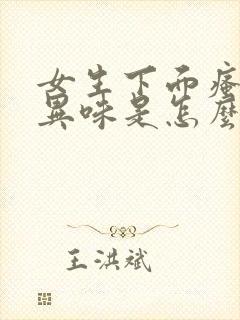 女生下面瘙
異味是怎麼
王洪斌